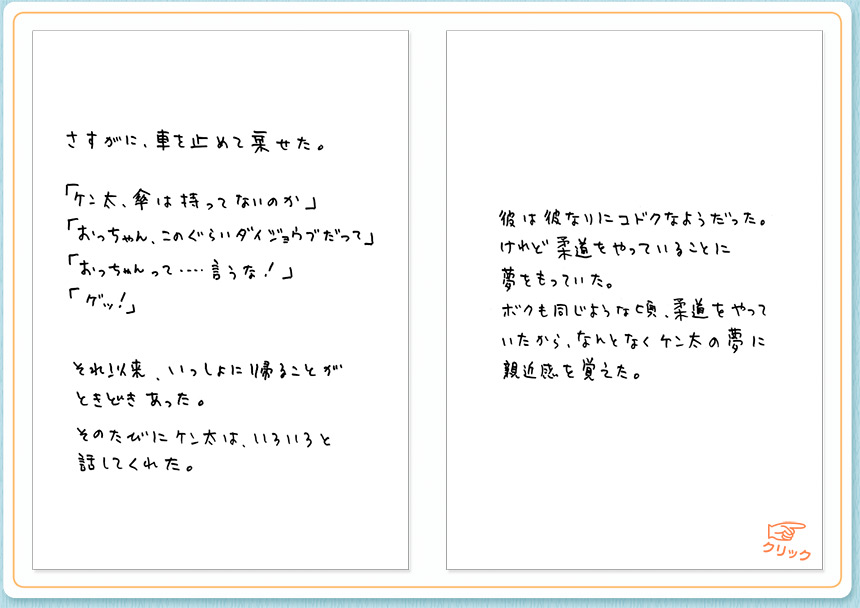 さすがに、車を止めて乗せた。
「ケン太、傘は持ってないのか」
「おっちゃん、このぐらいダイジョウブだって」
「おっちゃんって‥‥言うな！」
「ゲッ！」
それ以来、いっしょに帰ることが
ときどきあった。
そのたびにケン太は、いろいろと
話してくれた。
彼は彼なりにコドクなようだった。
けれど柔道をやっていることに
夢をもっていた。
ボクも同じような頃、柔道をやって
いたから、なんとなくケン太の夢に
親近感を覚えた。
クリック